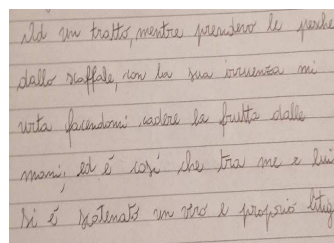 Ad un tratto, mentre prendevo le pesche
dallo scaffale, con la sua irruenza mi
urta facendomi cadere la frutta dalle
mani; ed è così che tra me e lui
si è scatenato un vero e proprio litig